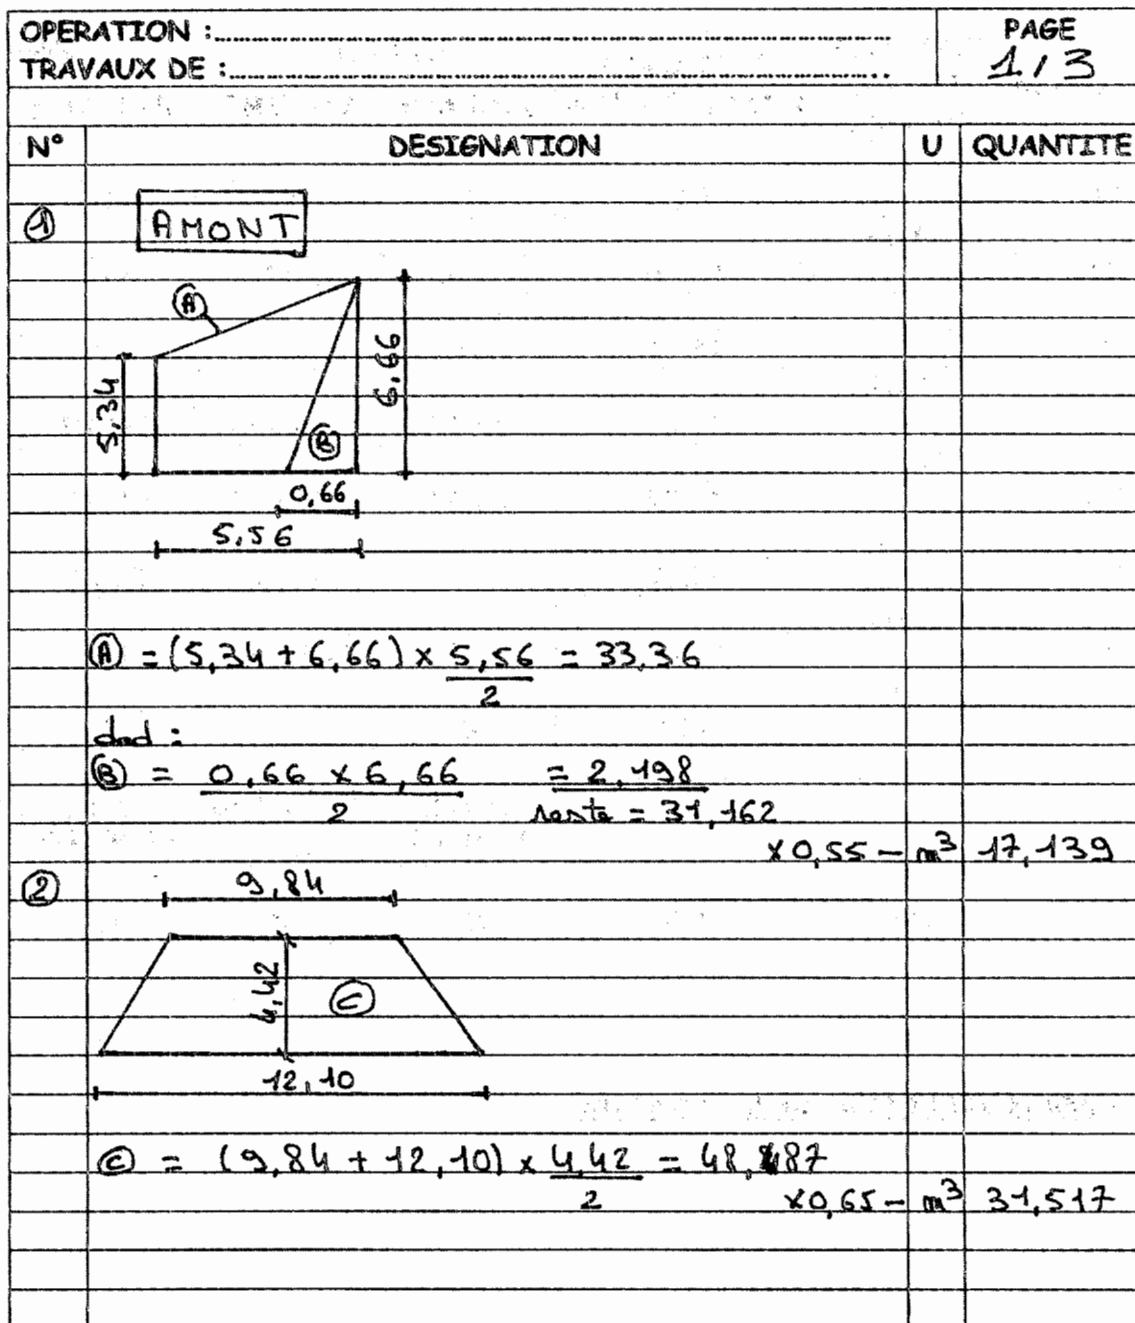 OPERATION :
TRAVAUX DE :
PAGE
1/3
N° DESIGNATION U QUANTITE
1 AMONT
A
5,34
6,66
B
0,66
5,56
A = (5,34 + 6,66) × 5,56 = 33,36
2
dnd :
B = 0,66 × 6,66 = 2,198
2 reste = 31,162
×0,55 - m³ 17,139
2 9,84
4,42
C
12,10
C = (9,84 + 12,10) × 4,42 = 48,487
2 ×0,65 - m³ 31,517